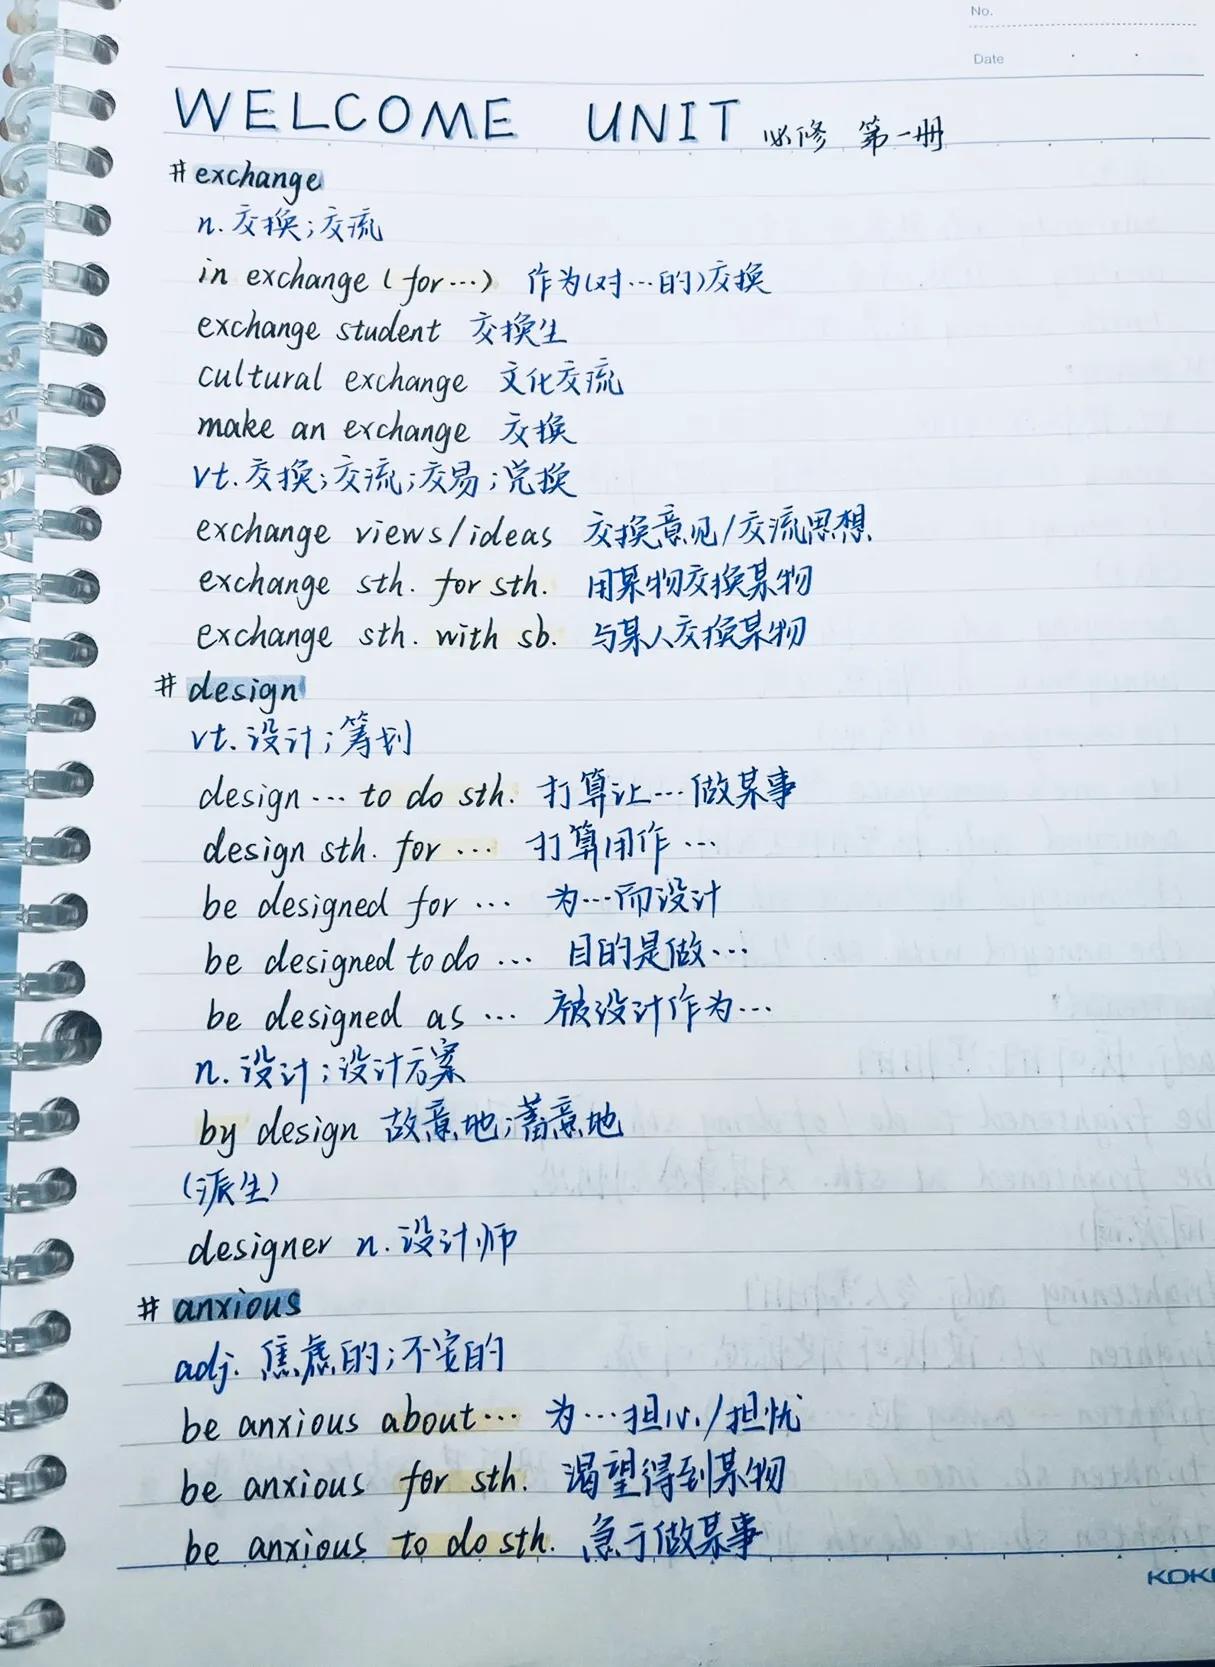 No.
Date
WELCOME UNIT 必修 第一册
# exchange
n. 交换;交流
in exchange (for…) 作为(对…的)交换
exchange student 交换生
cultural exchange 文化交流
make an exchange 交换
vt. 交换;交流;交易;兑换
exchange views/ideas 交换意见/交流思想
exchange sth. for sth. 用某物交换某物
exchange sth. with sb. 与某人交换某物
# design
vt. 设计;筹划
design … to do sth. 打算让…做某事
design sth. for … 打算用作 …
be designed for … 为…而设计
be designed to do … 目的是做…
be designed as … 被设计作为…
n. 设计;设计方案
by design 故意地;蓄意地
(派生)
designer n. 设计师
# anxious
adj. 焦虑的;不安的
be anxious about… 为…担心/担忧
be anxious for sth. 渴望得到某物
be anxious to do sth. 急于做某事